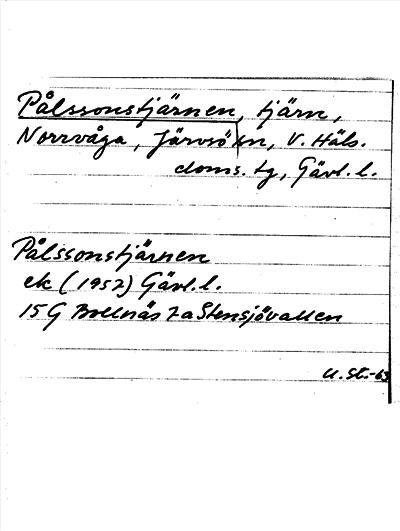 Pålssonstjärnen, tjärn,
Norrvåga, Järvsö sn, V. Häls.
doms. tg, Gävl. l.
Pålssonstjärnen
ek (1952) Gävl. l.
15 G Bollnäs 7a Stensjövallen
U. St.-63